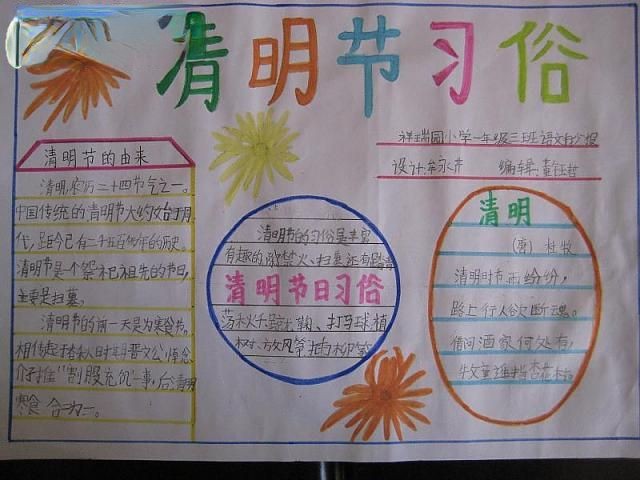 清明节习俗
祥瑞园小学一年级三班语文手抄报
设计:牟永卉 编辑:董钰哲
清明节的由来
清明,农历二十四节气之一。
中国传统的清明节大约始于周
代,距今已有二千五百多年的历史。
清明节是一个祭祀祖先的节日,
主要是扫墓。
清明节的前一天是为寒食节。
相传起于春秋时期晋文公,悼念
介子推“割股充饥”一事,后清明
寒食合二为一。
清明节的习俗是丰富
有趣的,除禁火、扫墓还有踏青
清明节日习俗
荡秋千、蹴鞠、打马球、植
树、放风筝、插柳等
清明
(唐) 杜牧
清明时节雨纷纷,
路上行人欲断魂。
借问酒家何处有,
牧童遥指杏花村。